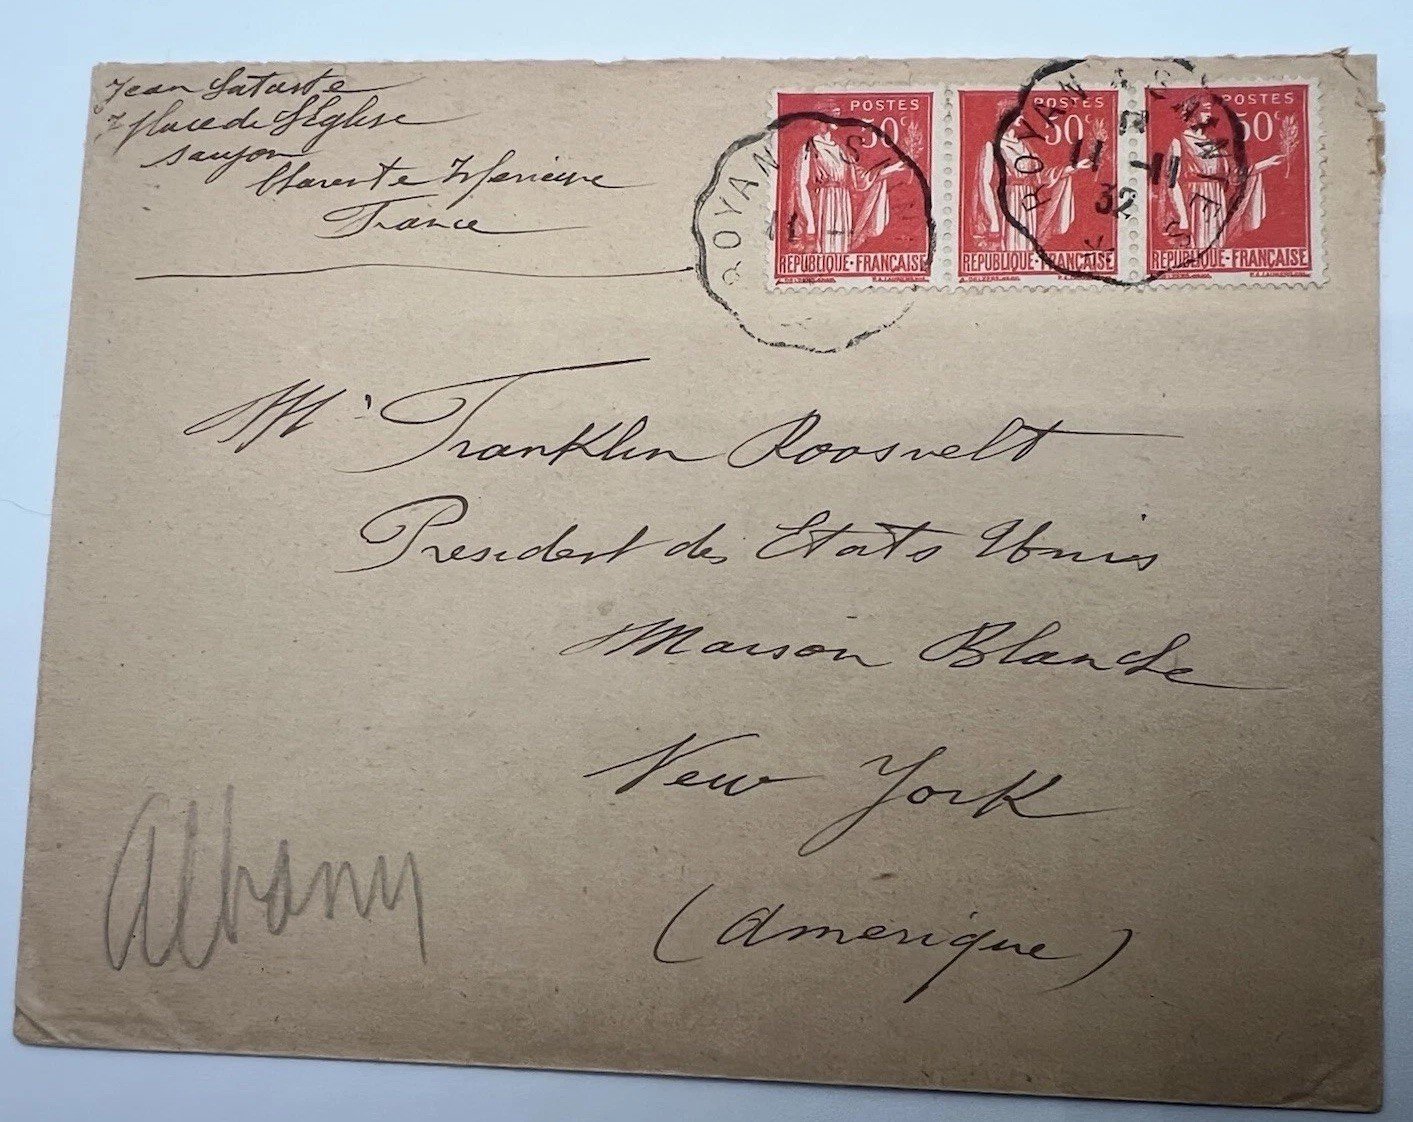 Jean Lataste
7 place de L'Eglise
Saujon
Charente Inferieure
France
POSTES POSTES POSTES
50c 50c 50c
REPUBLIQUE-FRANÇAISE REPUBLIQUE-FRANÇAISE REPUBLIQUE-FRANÇAISE
ROYAN A
11 -
ROYAN A SAINTES
11 -11
32
Mr Franklin Roosvelt
President des Etats Unies
Maison Blanche
New York
(Amérique)
Albany